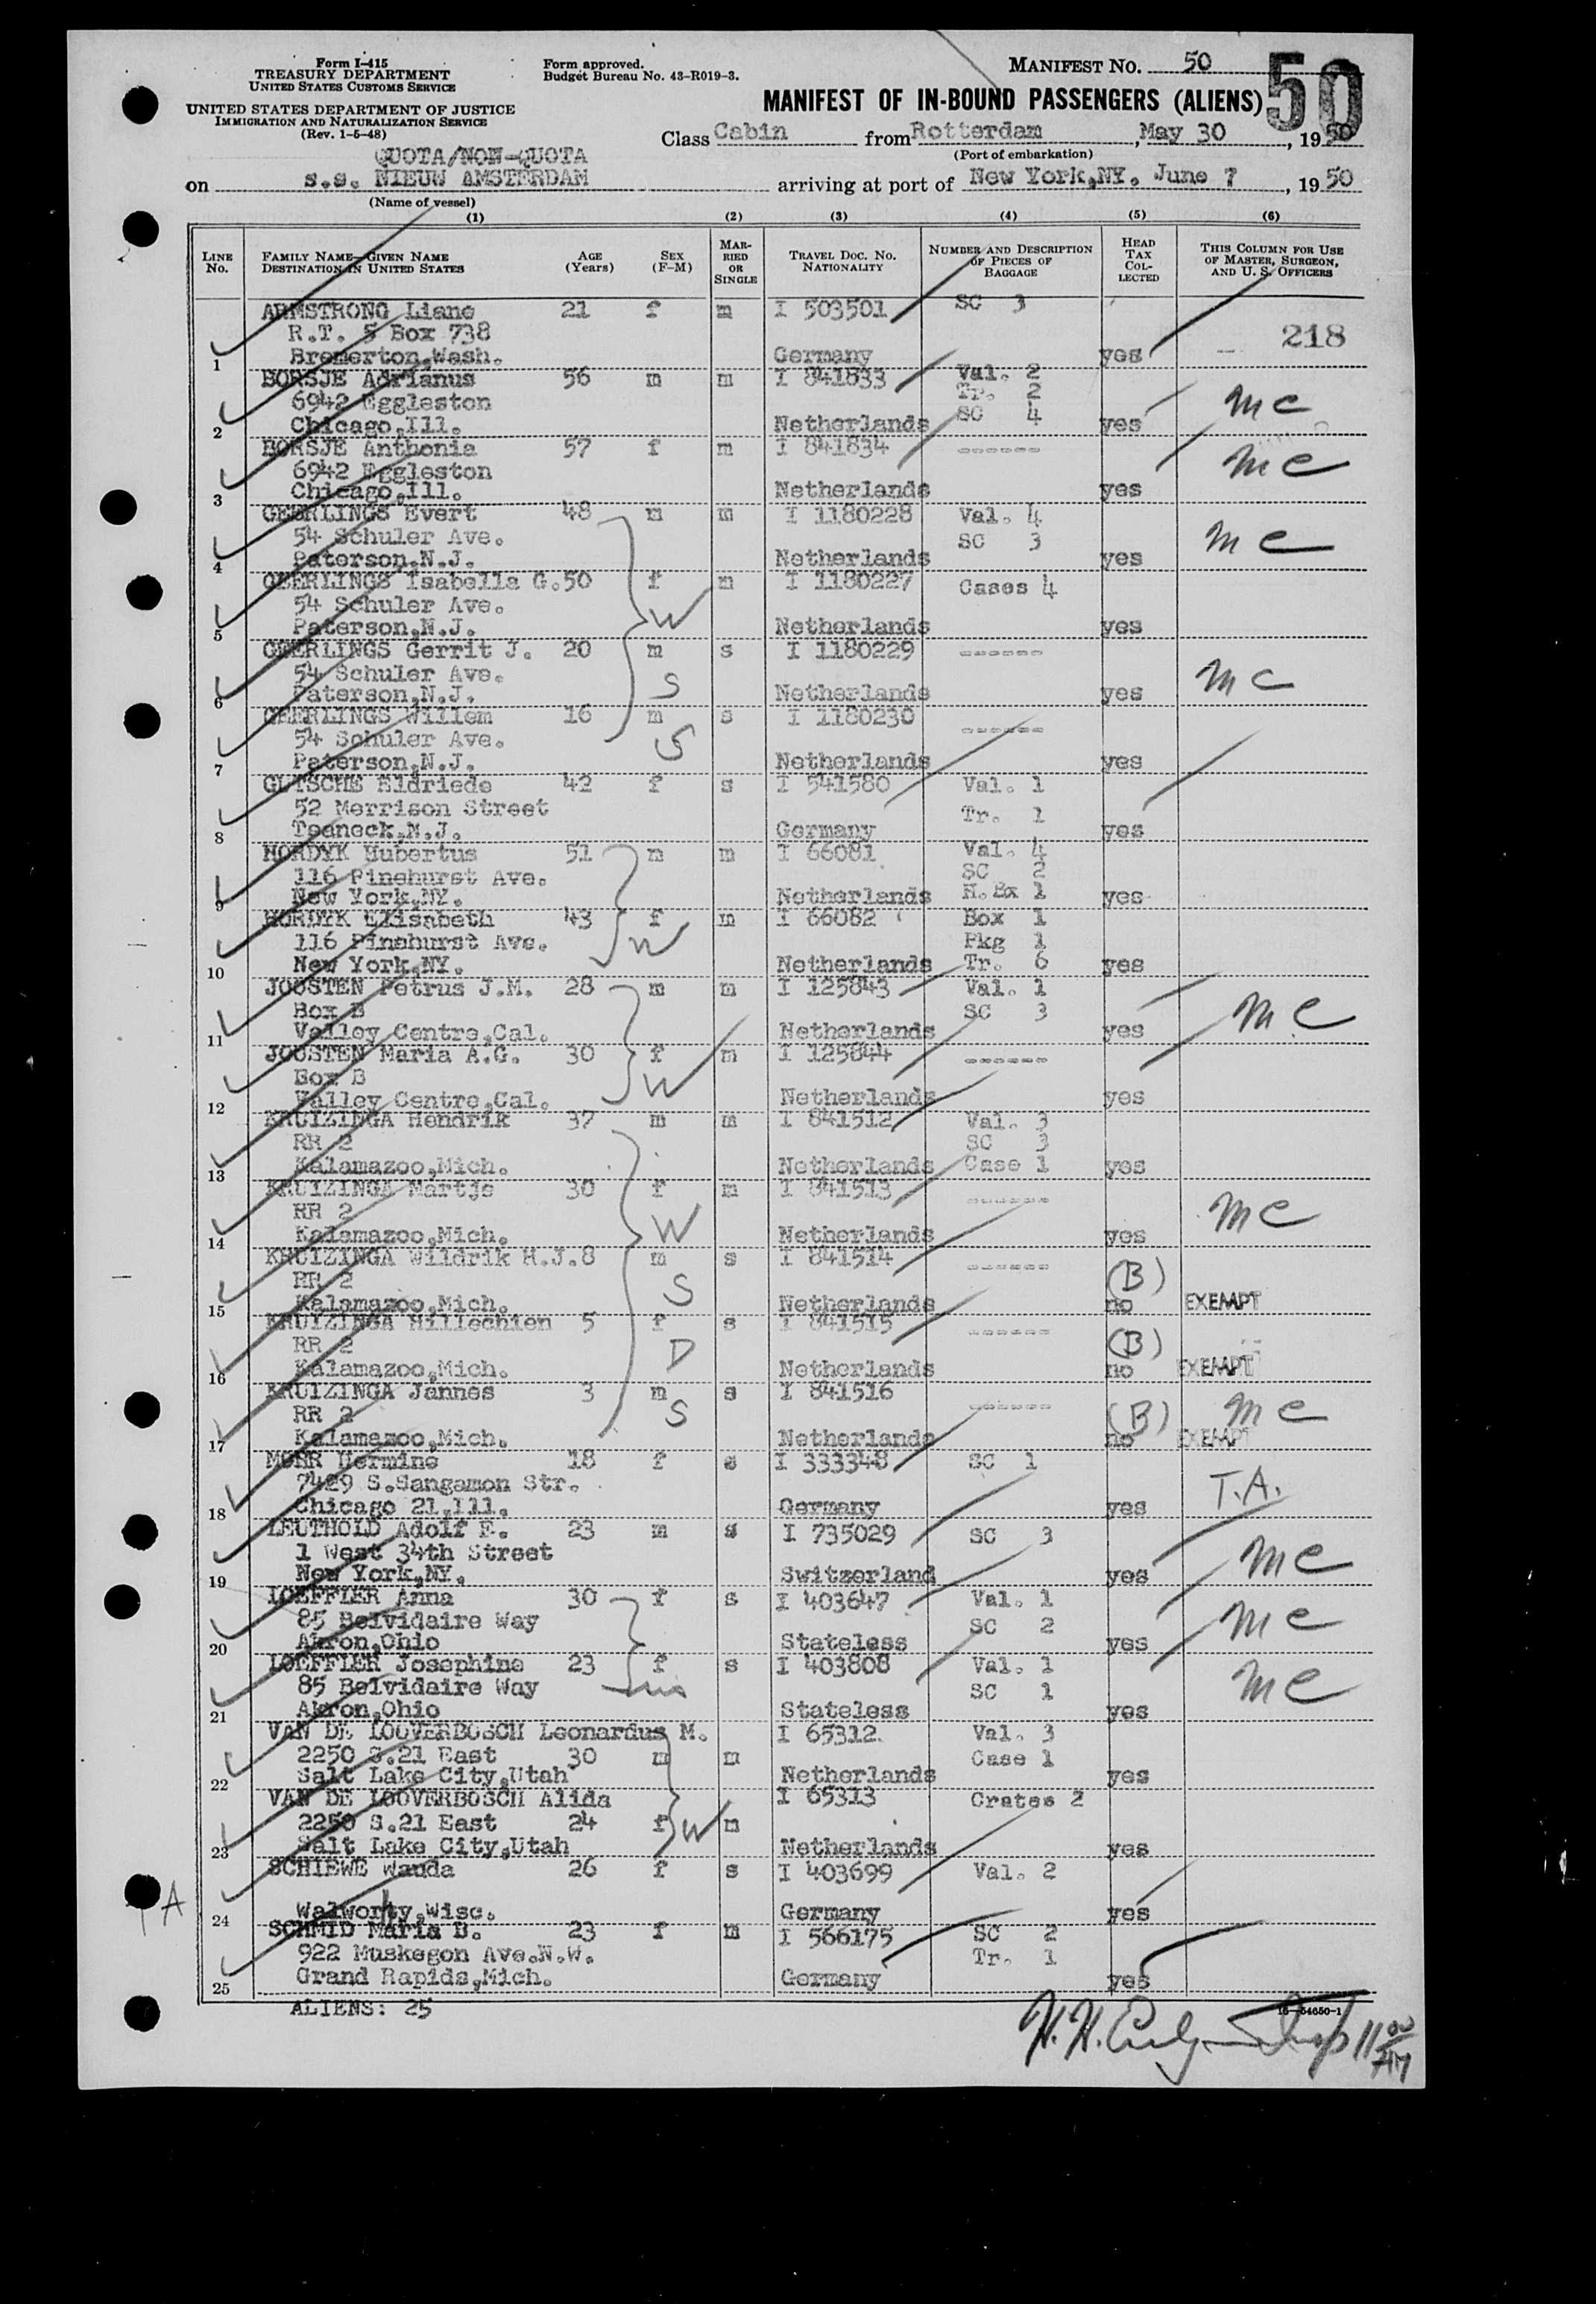 Form I-415
TREASURY DEPARTMENT
UNITED STATES CUSTOMS SERVICE
UNITED STATES DEPARTMENT OF JUSTICE
IMMIGRATION AND NATURALIZATION SERVICE
(Rev. 1-5-48)
Form approved.
Budget Bureau No. 43-R019-3.
MANIFEST NO. 50
50
MANIFEST OF IN-BOUND PASSENGERS (ALIENS)
Class Cabin from Rotterdam, May 30, 1950
(Port of embarkation)
QUOTA/NON-QUOTA
on s.s. NIEUW AMSTERDAM arriving at port of New York,NY. June 7, 1950
(Name of vessel)
(1) (2) (3) (4) (5) (6)
LINE NO. FAMILY NAME—GIVEN NAME DESTINATION IN UNITED STATES AGE (Years) SEX (F-M) MARRIED OR SINGLE TRAVEL DOC. NO. NATIONALITY NUMBER AND DESCRIPTION OF PIECES OF BAGGAGE HEAD TAX COLLECTED THIS COLUMN FOR USE OF MASTER, SURGEON, AND U. S. OFFICERS
ARMSTRONG Liane 21 f m I 503501 SC 3
R.T. 5 Box 738 218
1 Bremerton,Wash. Germany yes
BORSJE Adrianus 56 m m I 841833 Val. 2
6942 Eggleston Tr. 2 mc
2 Chicago,Ill. Netherlands SC 4 yes
BORSJE Anthonia 57 f m I 841834 ------
6942 Eggleston mc
3 Chicago,Ill. Netherlands yes
GEERLINGS Evert 48 m m I 1180228 Val. 4
54 Schuler Ave. SC 3 mc
4 Paterson,N.J. Netherlands yes
GEERLINGS Isabella G. 50 f m I 1180227 Cases 4
54 Schuler Ave. W
5 Paterson,N.J. Netherlands yes
GEERLINGS Gerrit J. 20 m s I 1180229 ------
54 Schuler Ave. S mc
6 Paterson,N.J. Netherlands yes
GEERLINGS Willem 16 m s I 1180230 ------
54 Schuler Ave. S
7 Paterson,N.J. Netherlands yes
GLTSCHE Eldriede 42 f s I 541580 Val. 1
52 Merrison Street Tr. 1
8 Teaneck,N.J. Germany yes
HORDYK Hubertus 51 m m I 66081 Val. 4
116 Pinehurst Ave. SC 2
9 New York,NY. Netherlands H.Bx 1 yes
HORDYK Elisabeth 43 f m I 66082 Box 1
116 Pinehurst Ave. W Pkg 1
10 New York,NY. Netherlands Tr. 6 yes
JOOSTEN Petrus J.M. 28 m m I 125843 Val. 1
Box B SC 3 mc
11 Valley Centre,Cal. Netherlands yes
JOOSTEN Maria A.G. 30 f m I 125844 ------
Box B W
12 Valley Centre,Cal. Netherlands yes
KRUIZINGA Hendrik 37 m m I 841512 Val. 3
RR 2 SC 3
13 Kalamazoo,Mich. Netherlands Case 1 yes
KRUIZINGA Martje 30 f m I 841513 ------
RR 2 W mc
14 Kalamazoo,Mich. Netherlands yes
KRUIZINGA Wildrik H.J. 8 m s I 841514 ------
RR 2 S (B)
15 Kalamazoo,Mich. Netherlands no EXEMPT
KRUIZINGA Hillechien 5 f s I 841515 ------
RR 2 D (B)
16 Kalamazoo,Mich. Netherlands no EXEMPT
KRUIZINGA Jannes 3 m s I 841516 ------
RR 2 S (B) mc
17 Kalamazoo,Mich. Netherlands no EXEMPT
MOHR Hermine 18 f s I 333348 SC 1
7429 S.Sangamon Str. T.A.
18 Chicago 21,Ill. Germany yes
LEUTHOLD Adolf F. 23 m s I 735029 SC 3
1 West 34th Street mc
19 New York,NY. Switzerland yes
LOEFFLER Anna 30 f s I 403647 Val. 1
85 Belvidaire Way SC 2 mc
20 Akron,Ohio Stateless yes
LOEFFLER Josephine 23 f s I 403808 Val. 1
85 Belvidaire Way sis SC 1 mc
21 Akron,Ohio Stateless yes
VAN DE LOOVERBOSCH Leonardus M. I 65312 Val. 3
2250 S.21 East 30 m m Case 1
22 Salt Lake City,Utah Netherlands yes
VAN DE LOOVERBOSCH Alida I 65313 Crates 2
2250 S.21 East 24 f W m
23 Salt Lake City,Utah Netherlands yes
SCHIEWE Wanda 26 f s I 403699 Val. 2
A
24 Walworthy,Wisc. Germany yes
SCHMID Maria B. 23 f m I 566175 SC 2
922 Muskegon Ave.N.W. Tr. 1
25 Grand Rapids,Mich. Germany yes
ALIENS: 25
16—54650-1
H.H. Insp 11 00 AM